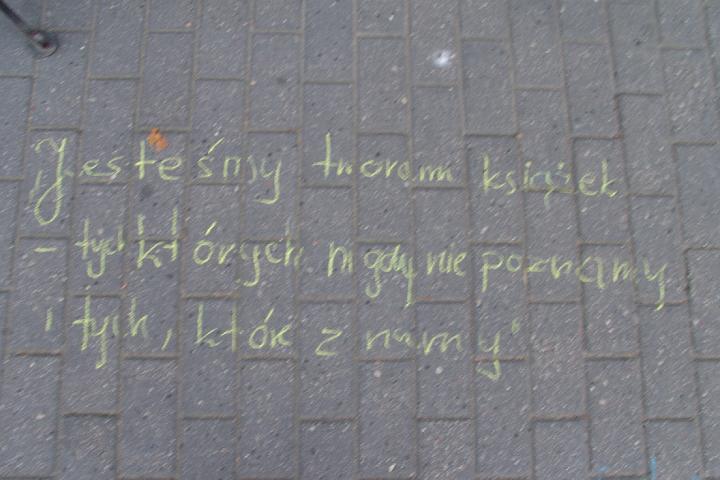 Jesteśmy tworami książek
- tych których nigdy nie poznamy
i tych, które znamy"